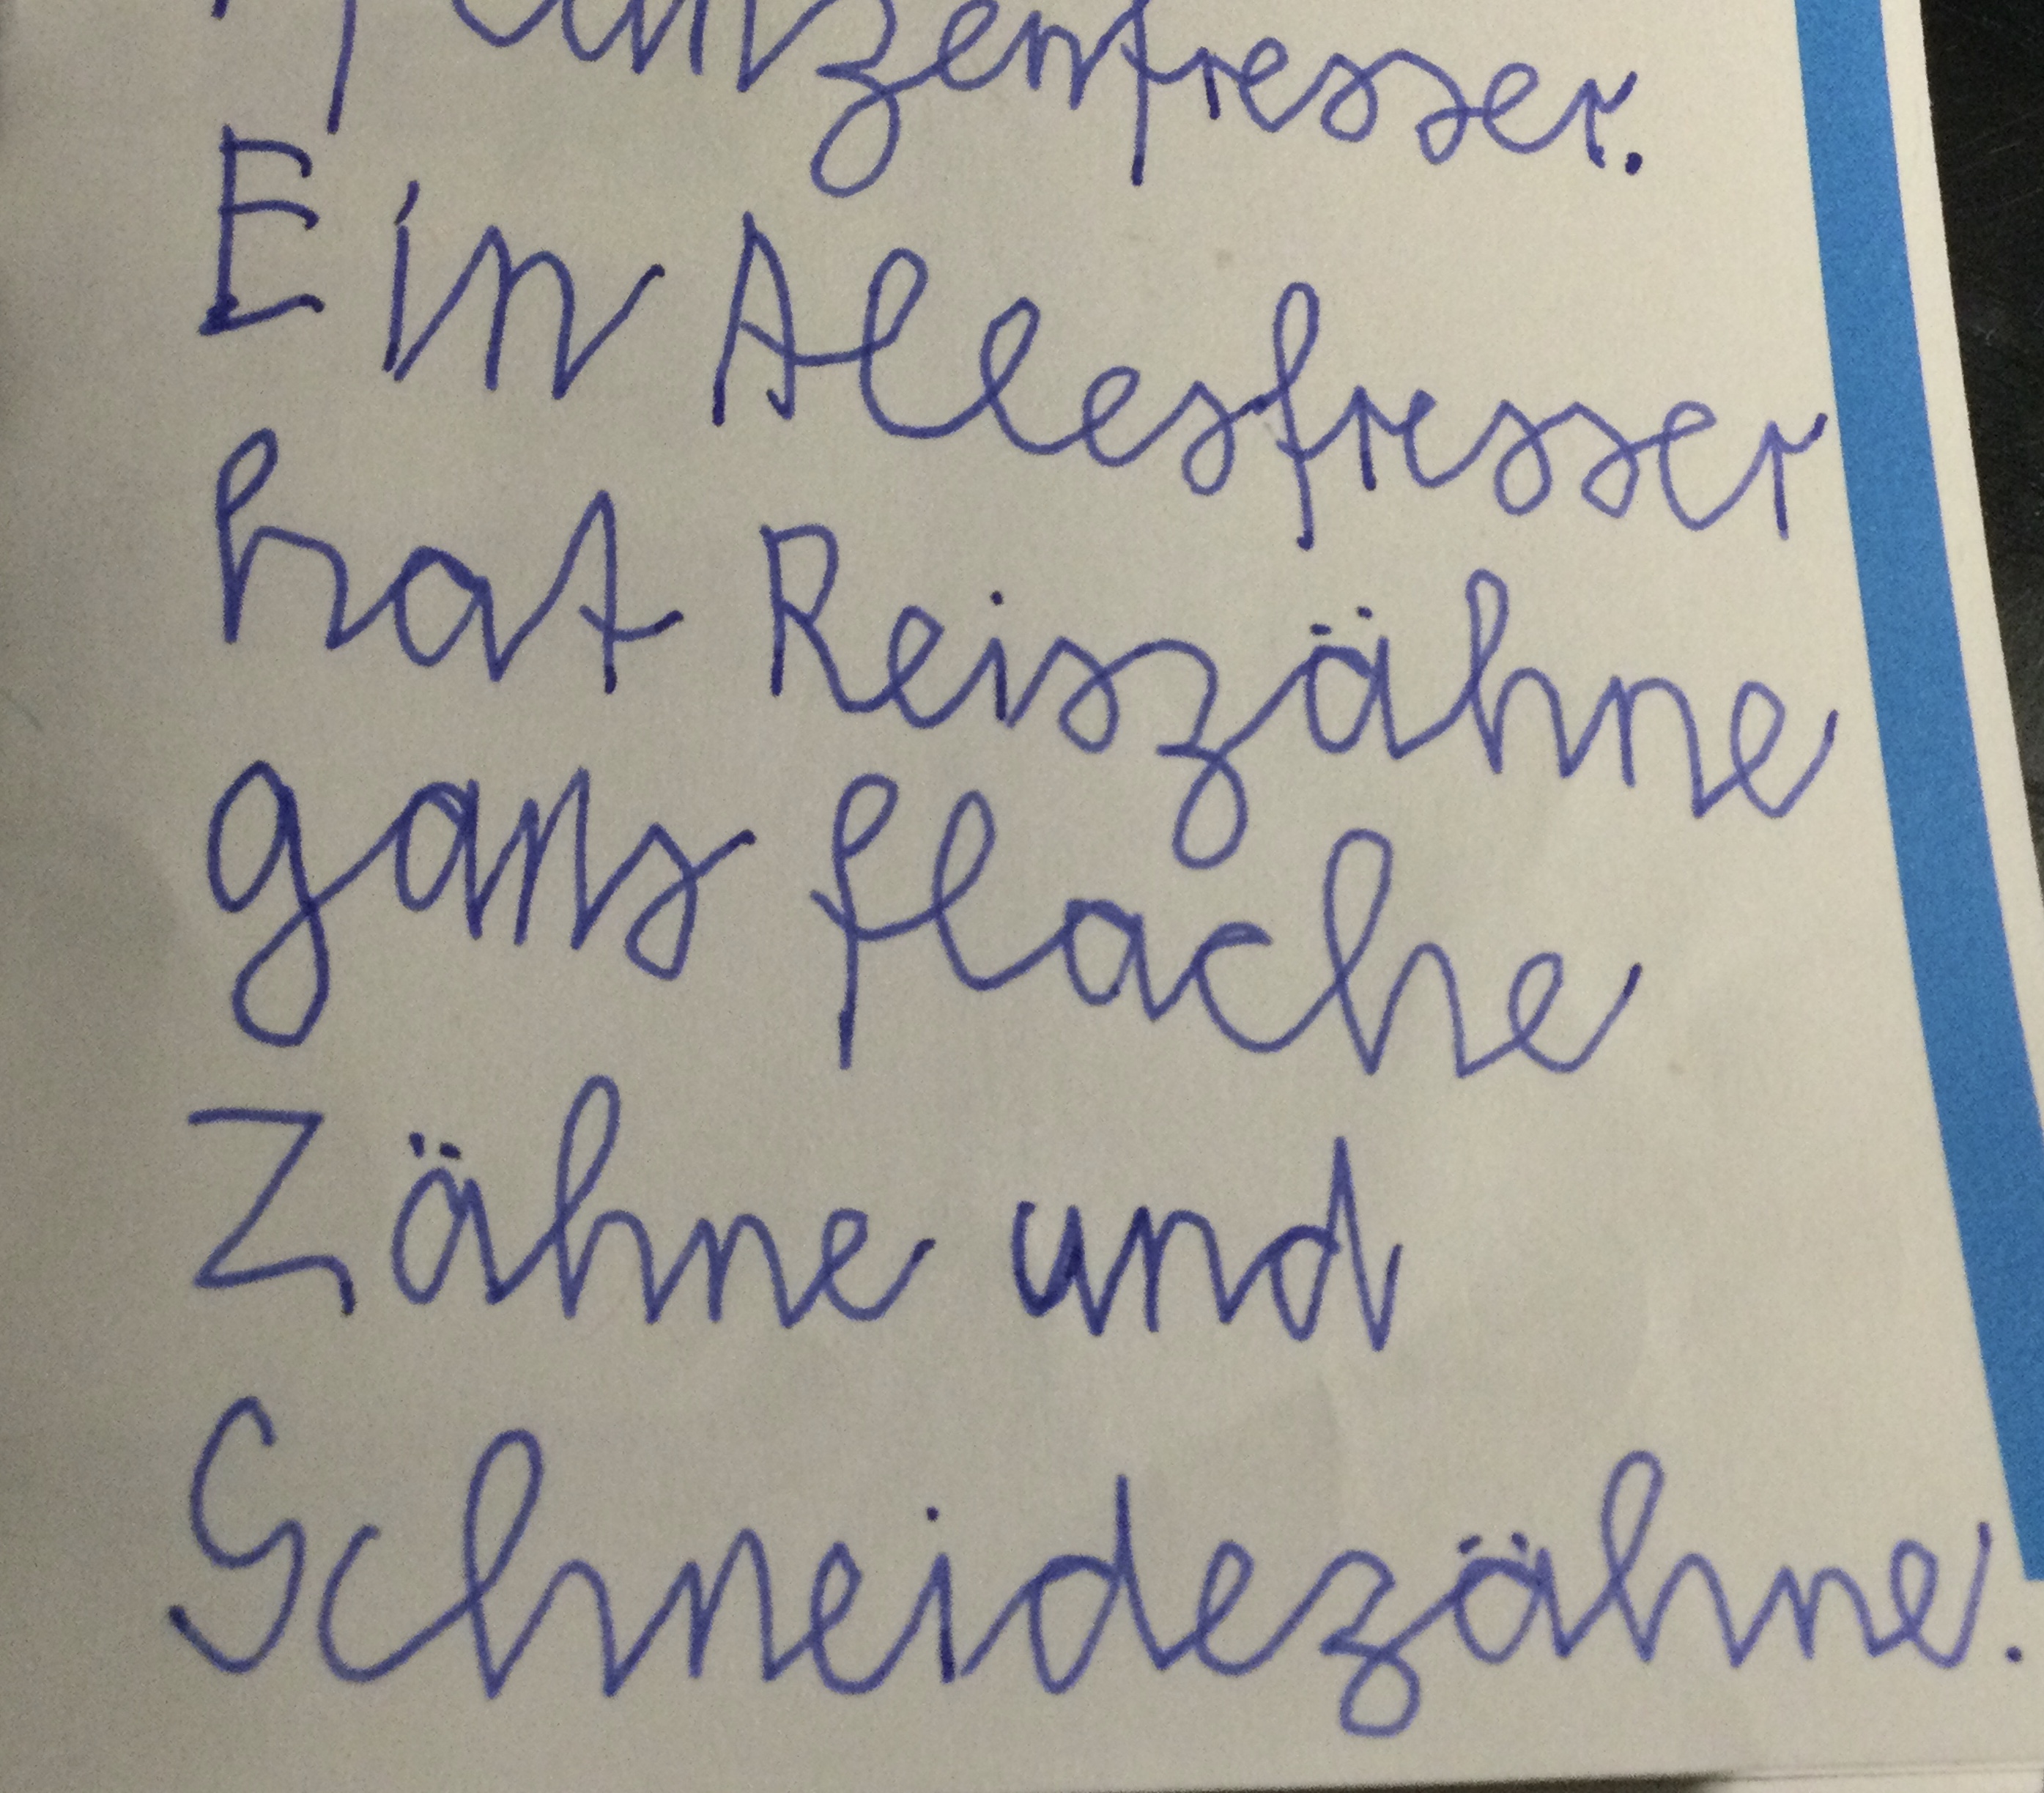 Pflanzenfresser.
Ein Allesfresser
hat Reiszähne
gans flache
Zähne und
Schneidezähne.